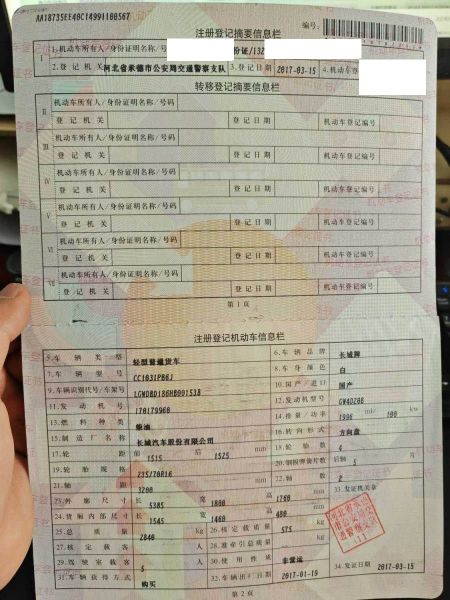 AA18735EE40C14991100567
编号:
注册登记摘要信息栏
I 1.机动车所有人/身份证明名称/号 份证/132
2.登记机关 河北省承德市公安局交通警察支队 3.登记日期 2017-03-15 4.机动车登
转移登记摘要信息栏
II 机动车所有人/身份证明名称/号码
登记机关 登记日期 机动车登记编号
III 机动车所有人/身份证明名称/号码
登记机关 登记日期 机动车登记编号
IV 机动车所有人/身份证明名称/号码
登记机关 登记日期 机动车登记编号
V 机动车所有人/身份证明名称/号码
登记机关 登记日期 机动车登记编号
VI 机动车所有人/身份证明名称/号码
登记机关 登记日期 机动车登记编号
VII 机动车所有人/身份证明名称/号码
登记机关 登记日期 机动车登记编号
第1页
注册登记机动车信息栏
5.车辆类型 轻型普通货车 6.车辆品牌 长城牌
7.车辆型号 CC1031PB6J 8.车身颜色 白
9.车辆识别代号/车架号 LGWDBD186HB001538 10.国产/进口 国产
11.发动机号 170179960 12.发动机型号 GW4D20B
13.燃料种类 柴油 14.排量/功率 1996 ml/ 100 kw
15.制造厂名称 长城汽车股份有限公司 16.转向形式 方向盘
17.轮距 前 1515 后 1525 mm 18.轮胎数 4
19.轮胎规格 235/70R16 20.钢板弹簧片数 后轴 5 片
21.轴距 3200 mm 22.轴数 2
23.外廓尺寸 长 5385 宽 1800 高 1760 mm 33.发证机关章
24.货厢内部尺寸 长 1545 宽 1460 高 480 mm
25.总质量 2840 kg 26.核定载质量 575 kg
27.核定载客 人 28.准牵引总质量 kg
29.驾驶室载客 5 人 30.使用性质 非营运
31.车辆获得方式 购买 32.车辆出厂日期 2017-01-19 34.发证日期 2017-03-15
第2页